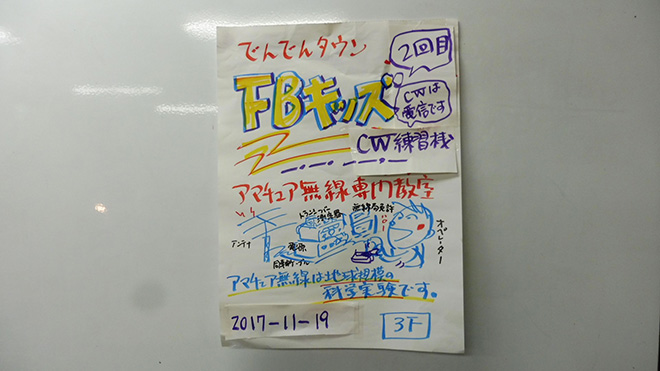 でんでんタウン
2回目
FBキッズ
CWは
電信です
CW練習機
アマチュア無線専門教室
トランシーバー
無線局免許
ハロー
アンテナ
電源
同軸ケーブル
オペレーター
アマチュア無線は地球規模の
科学実験です。
2017-11-19
3F